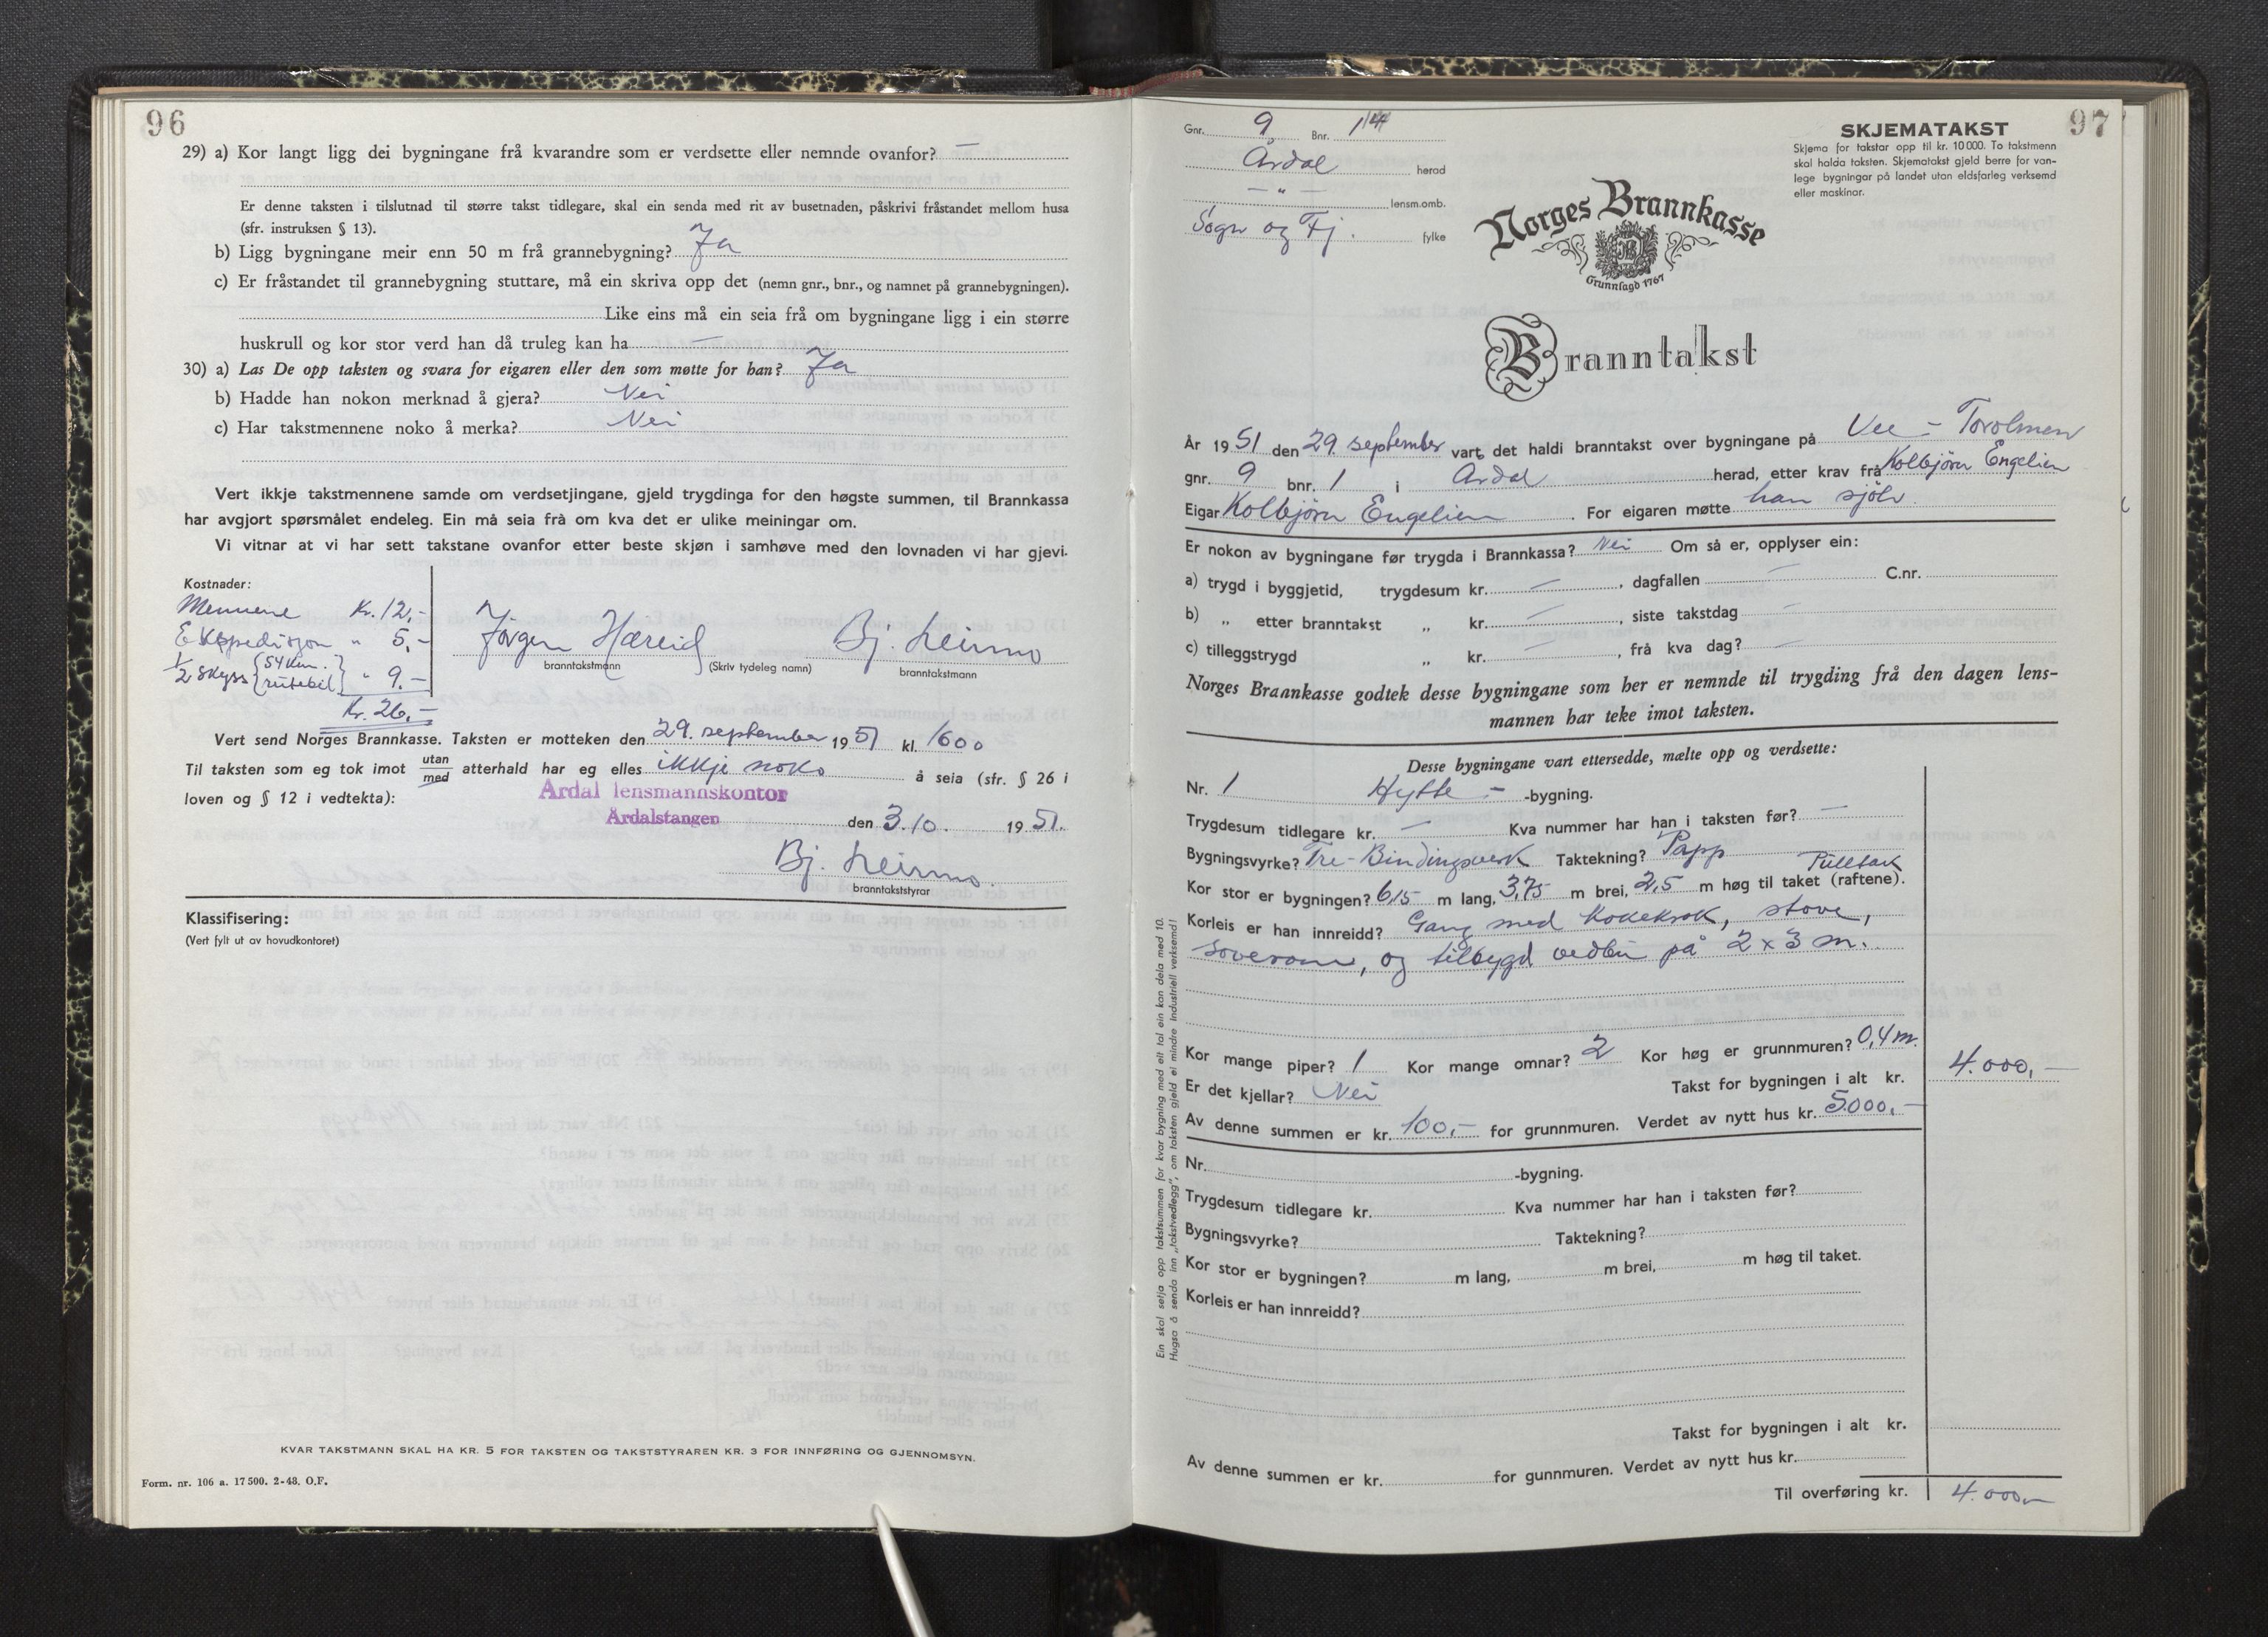 96
29) a) Kor langt ligg dei bygningane frå kvarandre som er verdsette eller nemnde ovanfor? —
Er denne taksten i tilslutnad til større takst tidlegare, skal ein senda med rit av busetnaden, påskrivi fråstandet mellom husa
(sfr. instruksen § 13).
b) Ligg bygningane meir enn 50 m frå grannebygning? Ja
c) Er fråstandet til grannebygning stuttare, må ein skriva opp det (nemn gnr., bnr., og namnet på grannebygningen).
Like eins må ein seia frå om bygningane ligg i ein større
huskrull og kor stor verd han då truleg kan ha —
30) a) Las De opp taksten og svara for eigaren eller den som møtte for han? Ja
b) Hadde han nokon merknad å gjera? Nei
c) Har takstmennene noko å merka? Nei
Vert ikkje takstmennene samde om verdsetjingane, gjeld trygdinga for den høgste summen, til Brannkassa
har avgjort spørsmålet endeleg. Ein må seia frå om kva det er ulike meiningar om.
Vi vitnar at vi har sett takstane ovanfor etter beste skjøn i samhøve med den lovnaden vi har gjevi.
Kostnader:
Mennene Kr. 12,-
Ekspedisjon " 5,-
1/2 skyss {54 km. rutebil} " 9.-
Kr. 26,-
Jørgen Hæreid Bj. Leirmo
branntakstmann (Skriv tydeleg namn) branntakstmann
Vert send Norges Brannkasse. Taksten er motteken den 29. september 1951 kl. 1600
Til taksten som eg tok imot utan/med atterhald har eg elles ikkje noko å seia (sfr. § 26 i
loven og § 12 i vedtekta):
Årdal lensmannskontor
Årdalstangen den 3.10. 1951.
Bj. Leirmo.
branntakststyrar
Klassifisering:
(Vert fylt ut av hovudkontoret)
KVAR TAKSTMANN SKAL HA KR. 5 FOR TAKSTEN OG TAKSTSTYRAREN KR. 3 FOR INNFØRING OG GJENNOMSYN.
Form. nr. 106 a. 17 500. 2-48. O.F.
97
Gnr. 9 Bnr. 1
Årdal herad
— " — lensm.omb.
Sogn og Fj. fylke
SKJEMATAKST
Skjema for takstar opp til kr. 10 000. To takstmenn
skal halda taksten. Skjematakst gjeld berre for van-
lege bygningar på landet utan eldsfarleg verksemd
eller maskinar.
Norges Brannkasse
Grunnlagd 1767
Branntakst
År 1951 den 29. september vart det haldi branntakst over bygningane på Vee - Torolmen
gnr. 9 bnr. 1 i Årdal herad, etter krav frå Kolbjörn Engelien
Eigar Kolbjörn Engelien. For eigaren møtte han sjölv.
Er nokon av bygningane før trygda i Brannkassa? Nei Om så er, opplyser ein:
a) trygd i byggjetid, trygdesum kr. —, dagfallen — C.nr.
b) „ etter branntakst „ kr. —, siste takstdag —
c) tilleggstrygd „ kr. —, frå kva dag? —
Norges Brannkasse godtek desse bygningane som her er nemnde til trygding frå den dagen lens-
mannen har teke imot taksten.
Desse bygningane vart ettersedde, mælte opp og verdsette:
Nr. 1 Hytte - -bygning.
Trygdesum tidlegare kr. — Kva nummer har han i taksten før? —
Bygningsvyrke? Tre-Bindingsverk Taktekning? Papp
Pulttak
Kor stor er bygningen? 6,15 m lang, 3,75 m brei, 2,5 m høg til taket (raftene).
Korleis er han innreidd? Gang med kokekrok, stove,
soverom, og tilbygd vedbu på 2 x 3 m.
Kor mange piper? 1 Kor mange omnar? 2 Kor høg er grunnmuren? 0,4 m.
Er det kjellar? Nei Takst for bygningen i alt kr. 4.000,-
Av denne summen er kr. 100,- for grunnmuren. Verdet av nytt hus kr. 5.000,-
Nr. -bygning.
Trygdesum tidlegare kr. Kva nummer har han i taksten før?
Bygningsvyrke? Taktekning?
Kor stor er bygningen? m lang, m brei, m høg til taket.
Korleis er han innreidd?
Takst for bygningen i alt kr.
Av denne summen er kr. for gunnmuren. Verdet av nytt hus kr.
Til overføring kr. 4.000,-
Ein skal setja opp takstsummen for kvar bygning med eit tal ein kan dela med 10.
Hugsa å senda inn „takstvedlegg”, om taksten gjeld ei mindre industriell verksemd!